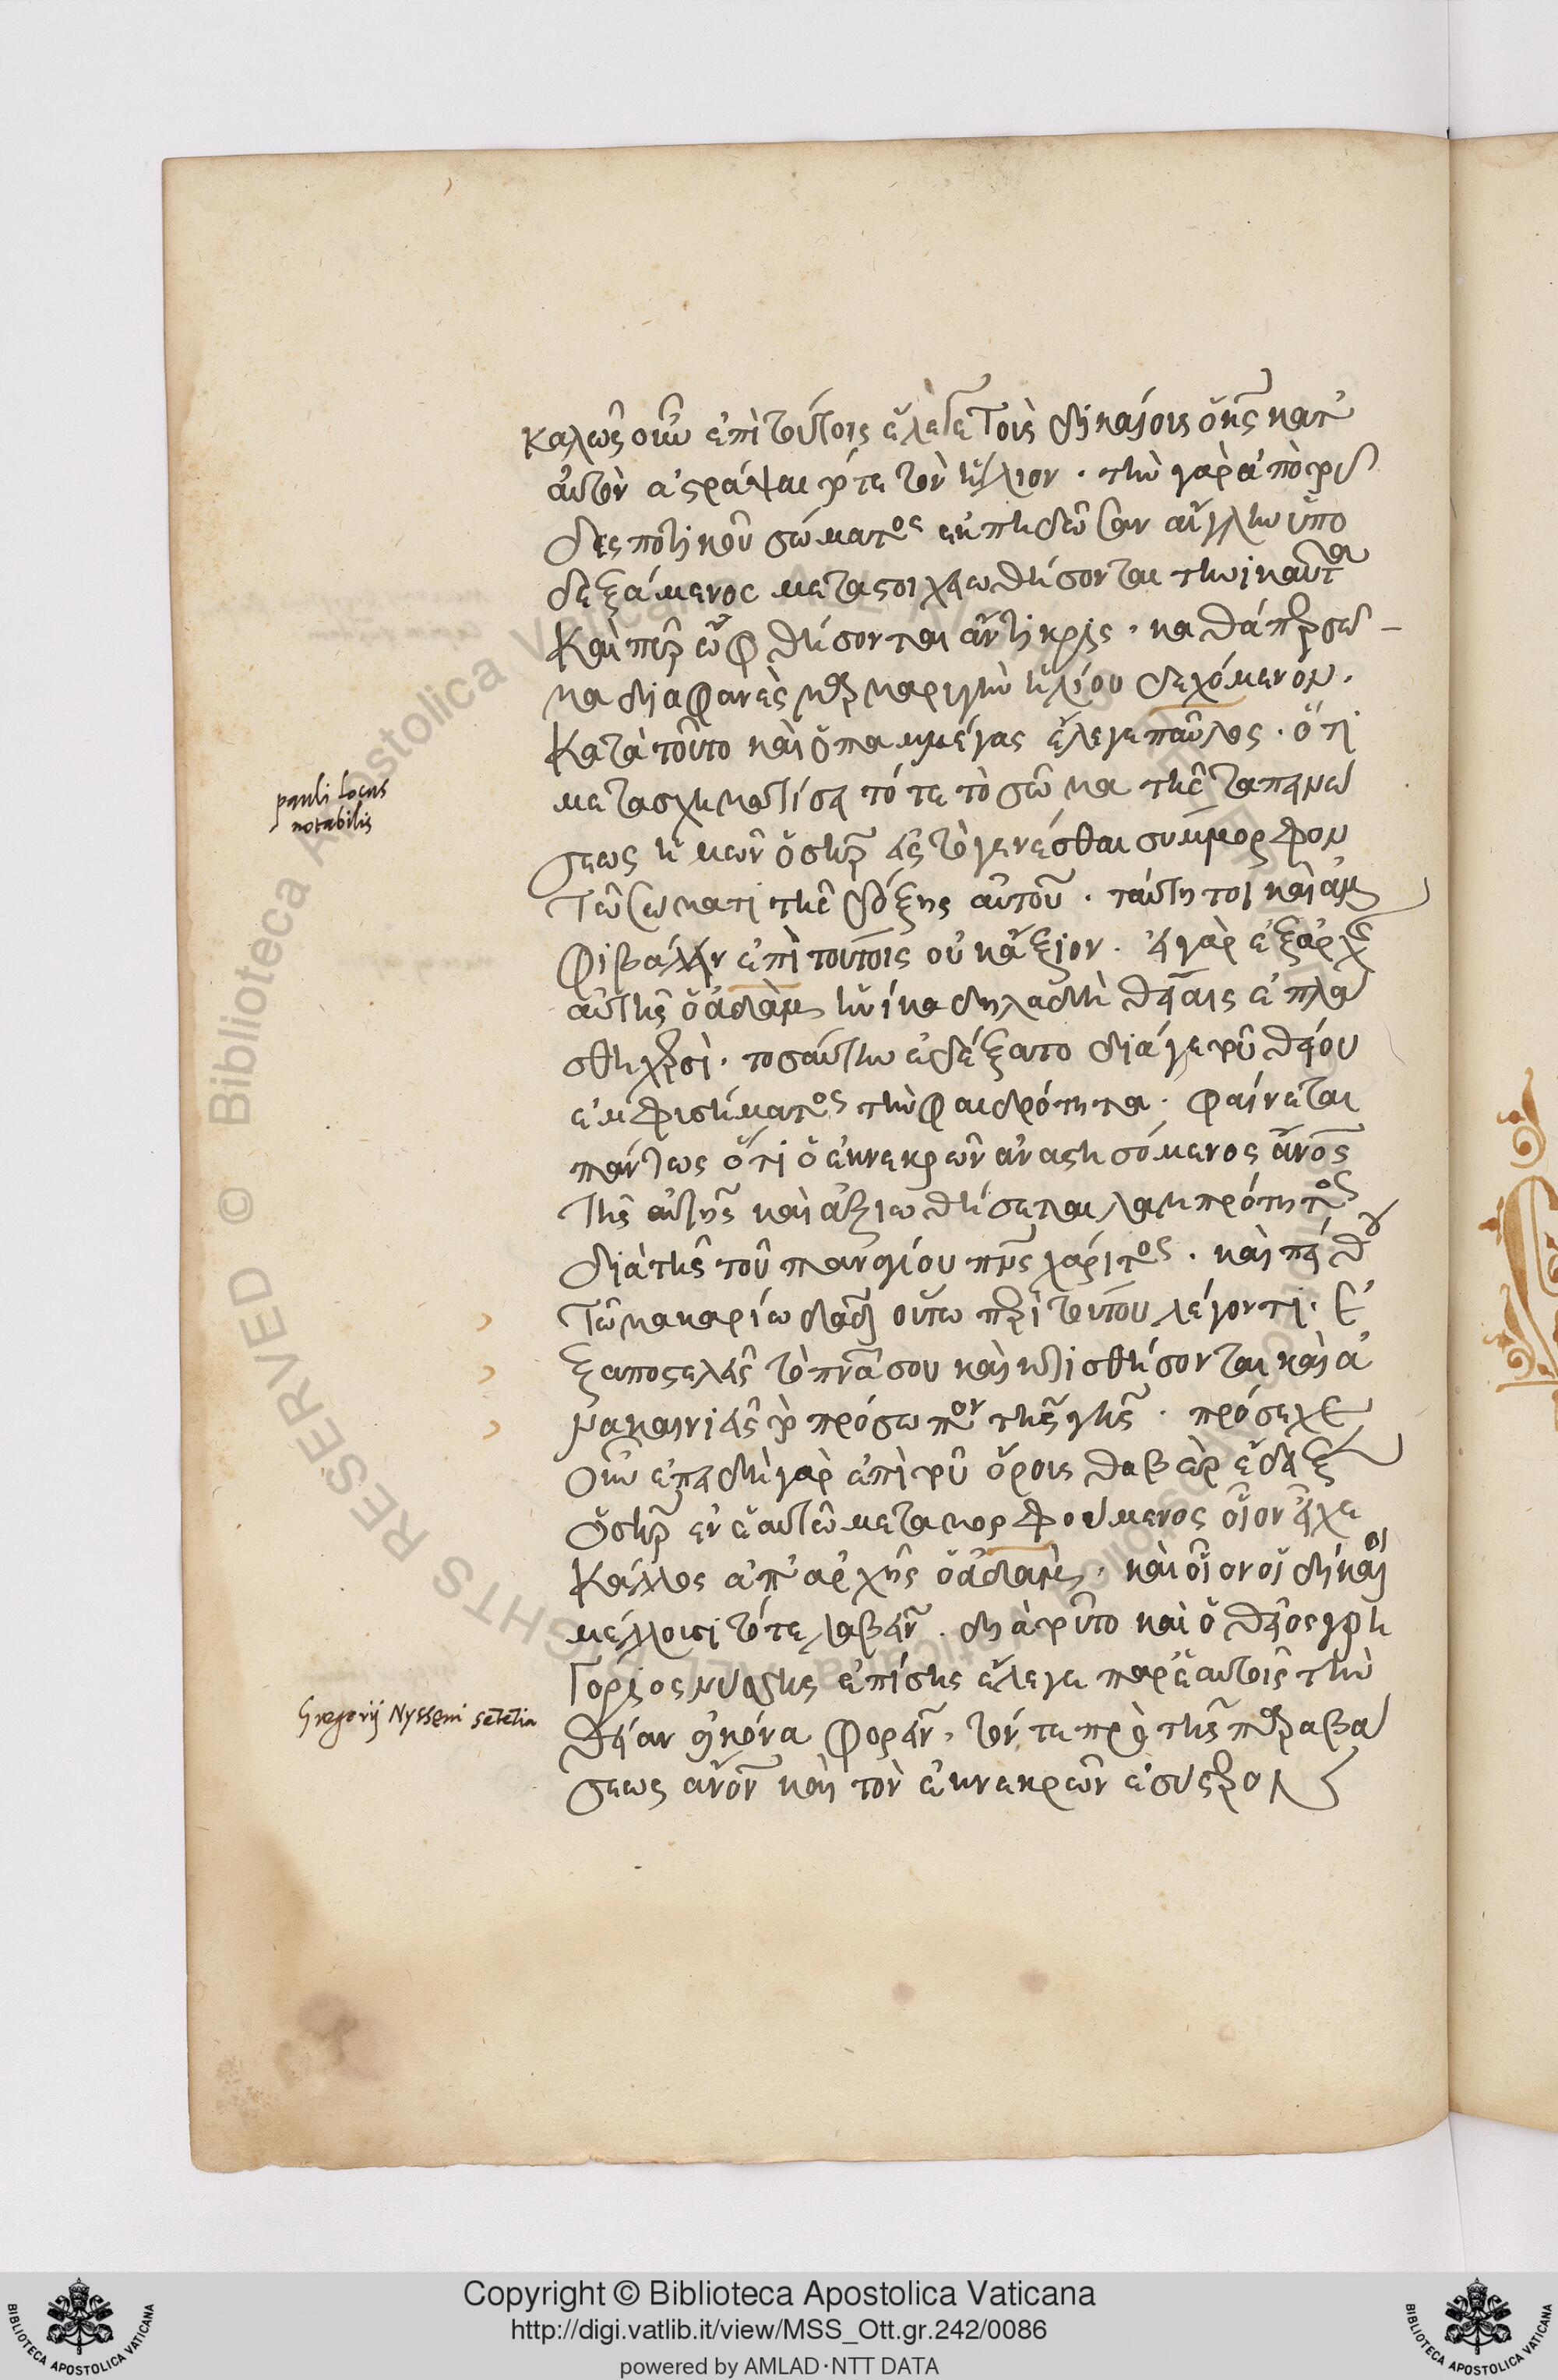 καλῶς οὖν ἐπὶ τούτοις ἔλεγε τοὺς δικαίους ὁ χς κατ'
αὐτὸν ἀστράψαι τότε τὸν ἥλιον · τὴν γὰρ ἀπὸ τοῦ
δεσποτικοῦ σώματος ἐκπηδῶσαν αἴγλην ὑπο
δεξάμενος μεταστοιχειωθήσονται τηνικαῦτα
καὶ πῦρ ὀφθήσονται ἄντικρυς · καθάπερ σῶ
μα διαφανὲς μαρμαρυγὴν ἡλίου δεχόμενον ·
κατὰ τοῦτο καὶ ὁ παμμέγας ἔλεγε παῦλος · ὅτι
μετασχηματίσει τότε τὸ σῶμα τῆς ταπεινώ
σεως ἡμῶν ὁ σηρ εἰς τὸ γενέσθαι σύμμορφον
τῷ σώματι τῆς δόξης αὐτοῦ · ταύτη τοι καὶ ἀμ
φιβάλλειν ἐπὶ τούτοις οὐκ ἄξιον · εἰ γὰρ ἐξ ἀρχῆς
αὐτῆς ὁ ἀδὰμ ἡνίκα δηλαδὴ θείαις ἐπλά
σθη χερσὶ · τοσαύτην ἐδέξατο διά γε τοῦ θείου
ἐμφυσήματος τὴν φαιδρότητα · φαίνεται
πάντως ὅτι ὁ ἐκ νεκρῶν ἀναστησόμενος ἄνος
τῆς αὐτῆς καὶ ἀξιωθήσεται λαμπρότητος
διὰ τῆς τοῦ παναγίου πνς χάριτος · καὶ πείθου
τῷ μακαρίῳ δαδ οὕτω περὶ τούτου λέγοντι · ἐ
ξαποστελεῖς τὸ πνα σου καὶ κτισθήσονται καὶ ἀ
νακαινιεῖς τὸ πρόσωπον τῆς γῆς · πρόσεχε
οὖν ἐπειδὴ γὰρ ἐπὶ τοῦ ὄρους θαβὼρ ἔδειξεν
ὁ σηρ ἐν ἑαυτῷ μεταμορφούμενος οἷον εἶχε
κάλλος ἀπ' ἀρχῆς ὁ ἀδὰμ · καὶ οἷον οἱ δίκαιοι
μέλλουσι τότε λαβεῖν · διὰ τοῦτο καὶ ὁ θεῖος γρη
γόριος νύσσης ἐπίσης ἔλεγε παρ' ἑαυτοῖς τὴν
θείαν εἰκόνα φορεῖν · τόν τε πρὸ τῆς παραβά
σεως ἄνον καὶ τὸν ἐκ νεκρῶν ἐς ὕστερον
pauli locus
notabilis
Gregorij Nysseni setētia
© Biblioteca Apostolica Vaticana ALL RIGHTS RESERVED
Copyright © Biblioteca Apostolica Vaticana
http://digi.vatlib.it/view/MSS_Ott.gr.242/0086
powered by AMLAD·NTT DATA
BIBLIOTECA APOSTOLICA VATICANA
BIBLIOTECA APOSTOLICA VATICANA